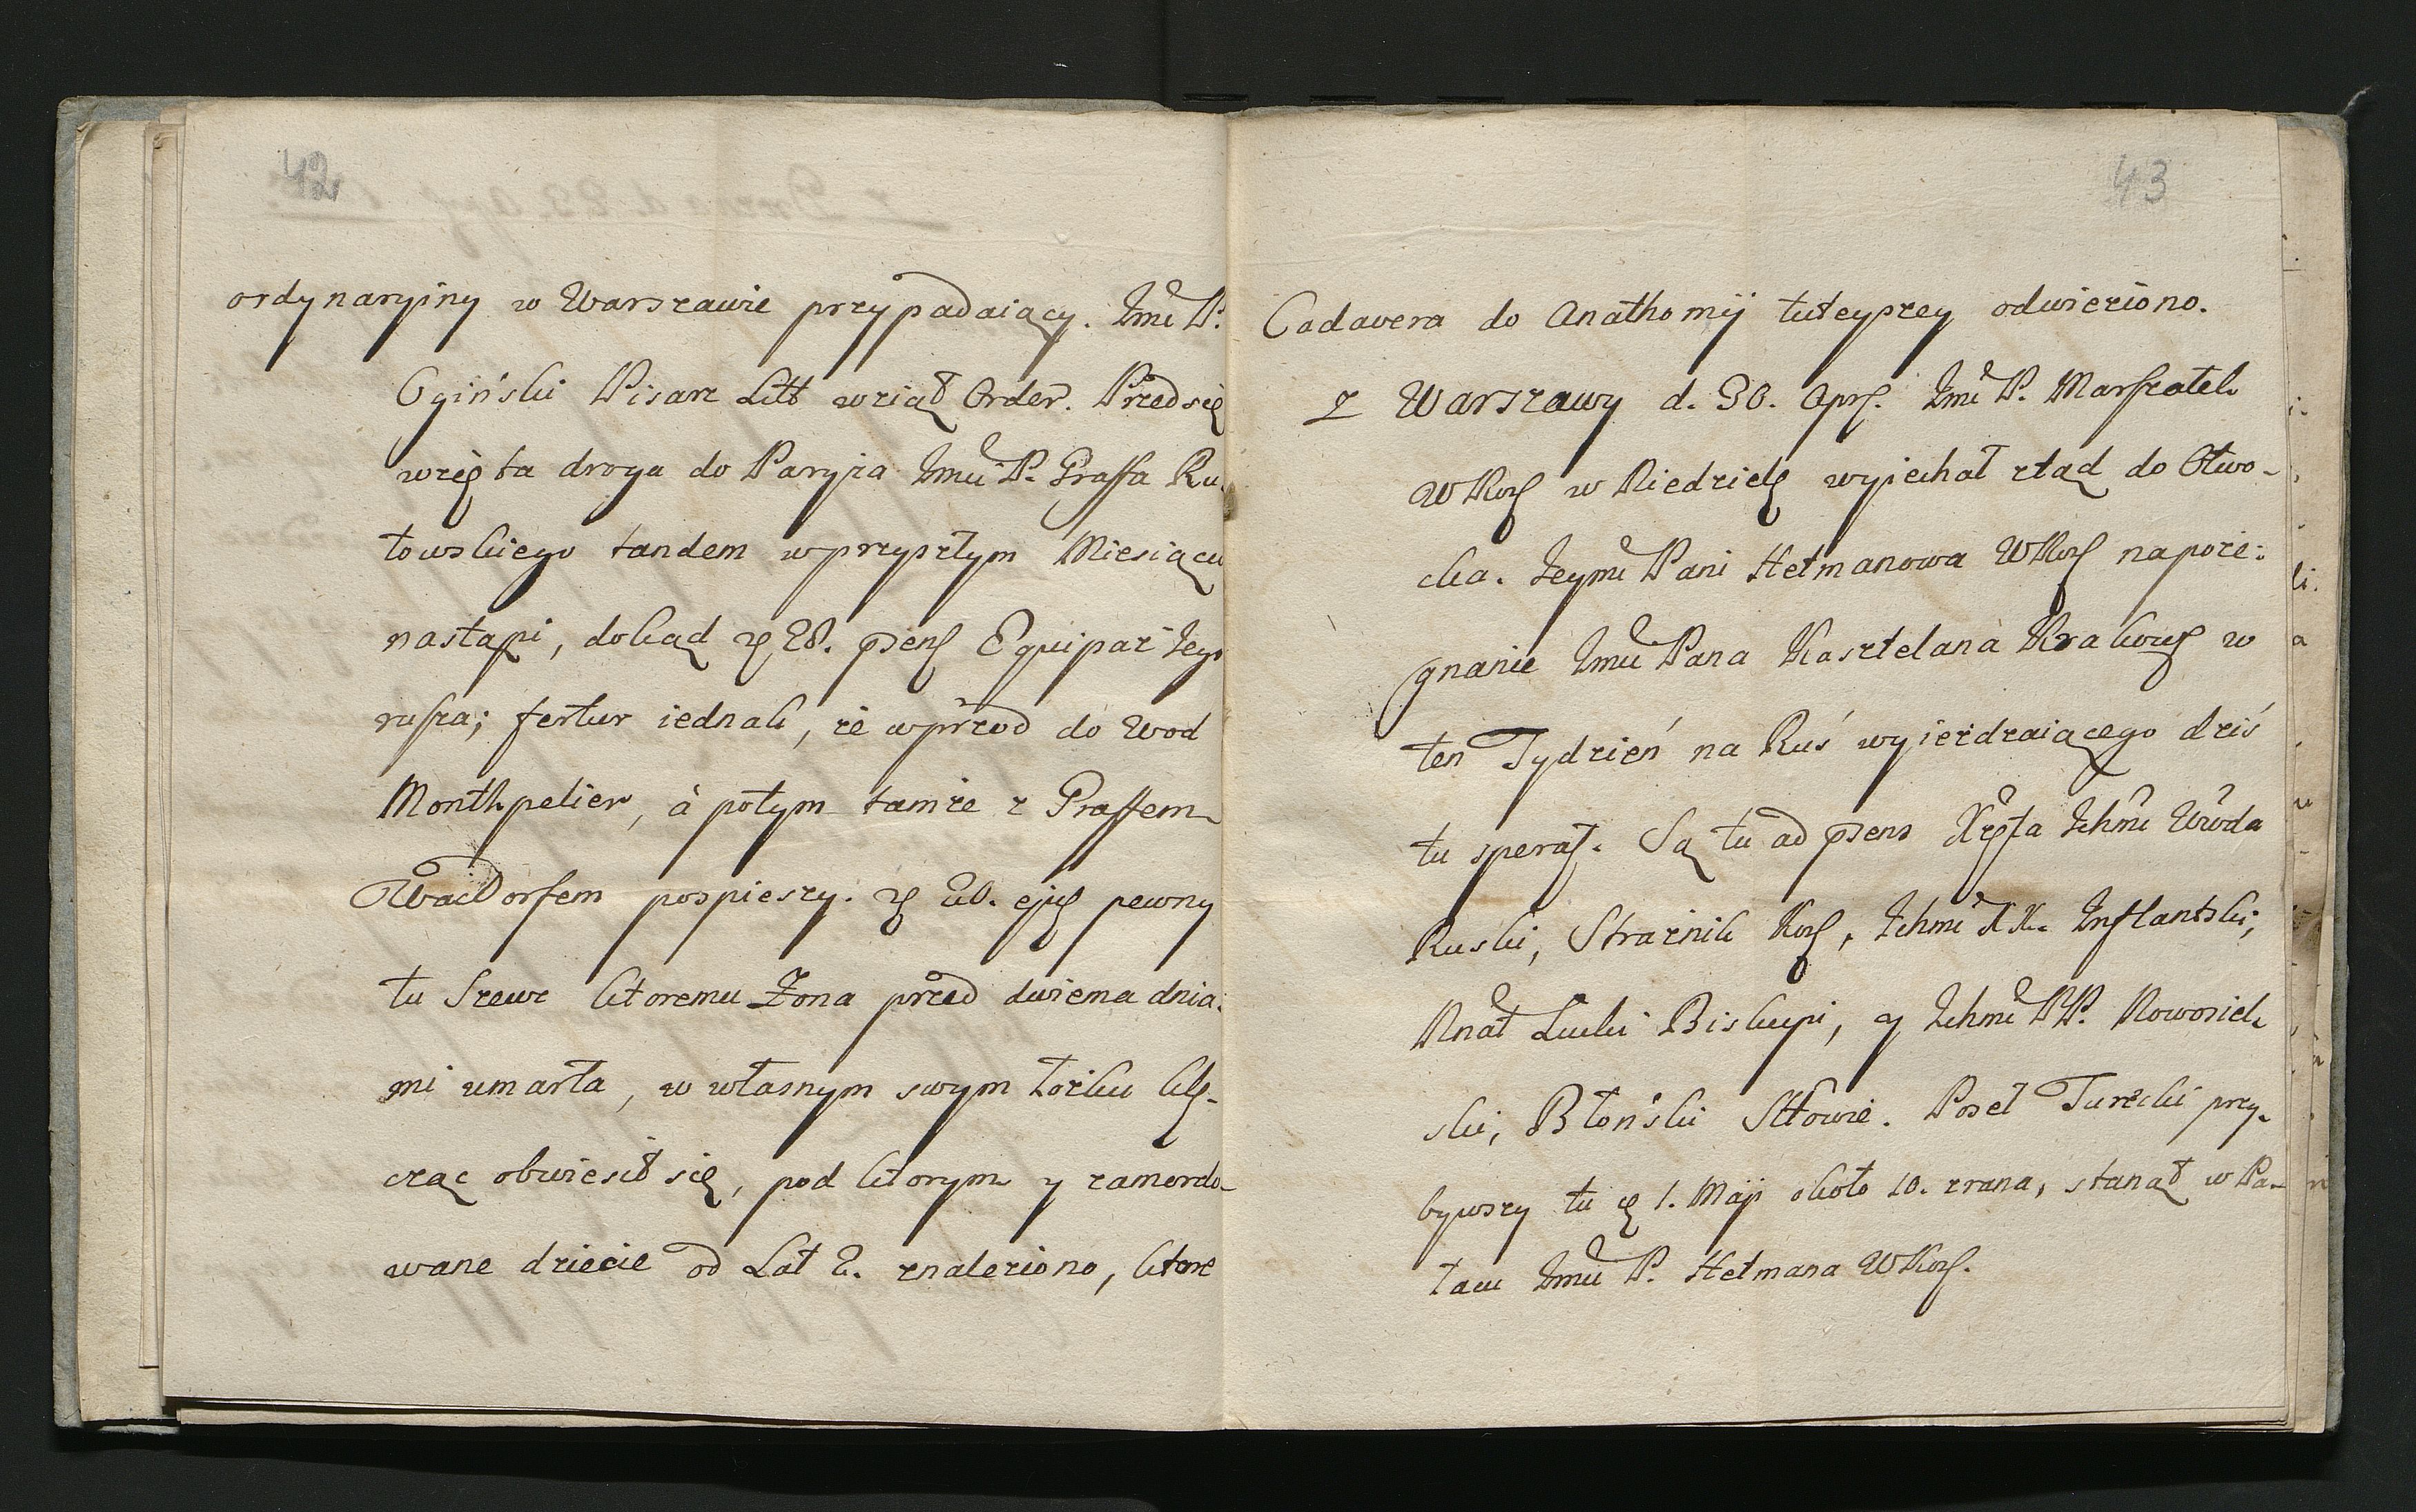 42
ordynaryiny w Warszawie przypadaiący. Jmć P.
Ogiński Pisarz Litt wziął Order. Przedsię
wzięta droga do Paryża Jmći P. Graffa Ru-
towskiego tandem w przyszłym Miesiącu
nastąpi, dokąd 28. Equipaż Jego
rusza; fertur iednak, że wprzod do Wod
Monthpelier, à potym tamże z Graffem
WacDorfem pospieszy. 20. ejus pewny
tu Szewc ktoremu Żona przed dwiema dnia-
mi umarła, w własnym swym łożku klę-
cząc obwiesił się, pod ktorym y zamordo-
wane dziecie od Lat 2. znaleziono, ktore
43
Cadavera do Anathomij tuteyszey odwieziono.
z Warszawy d. 30. Apr. Jmć P. Marszałek
WKor w Niedzielę wyjechał ztąd do Otwo-
cka. Jeymć Pani Hetmanowa WKor na poże-
gnanie Jmći Pana Kasztelana Krakow w
ten Tydzień na Ruś wyieżdzaiącego dziś
tu sperat. Są tu ad psens Xżęta Ichmć Wwda
Ruski, Strażnik Kor, Ichmć XX. Inflantski,
Łucki Biskupi, y Ichmć PP. Nowosiel-
ski, Błoński Sttowie. Poseł Turecki przy-
bywszy tu 1. Maji około 10. zrana, stanął w Pa-
łacu Jmći P. Hetmana WKor.